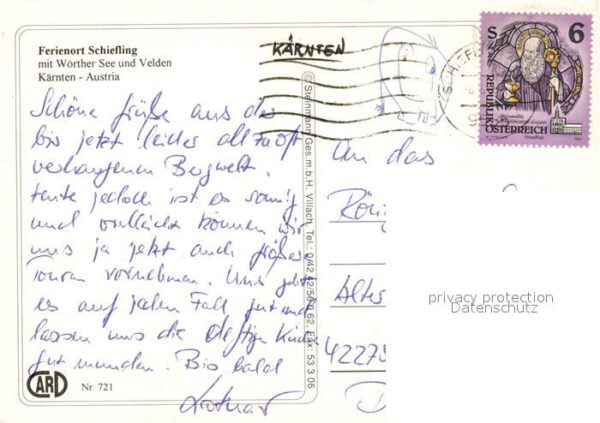 Ferienort Schiefling
mit Wörther See und Velden
Kärnten - Austria
KÄRNTEN
S 6
REPUBLIK
ÖSTERREICH
Schöne Grüße aus der
bis jetzt leider allzuoft
verhangenen Bergwelt.
Heute jedoch ist es sonnig
und vielleicht können wir
uns ja jetzt auch größere
Touren vornehmen. Uns geht
es auf jeden Fall gut und
lassen uns die deftige
gut munden. Bis bald
Lothar
CARD
Nr. 721
© Steinmann Ges.m.b.H. Villach, Tel.: 0/42 42/56 0 62, Fax: 53 3 06
An das
Alter
4227
privacy protection
Datenschutz